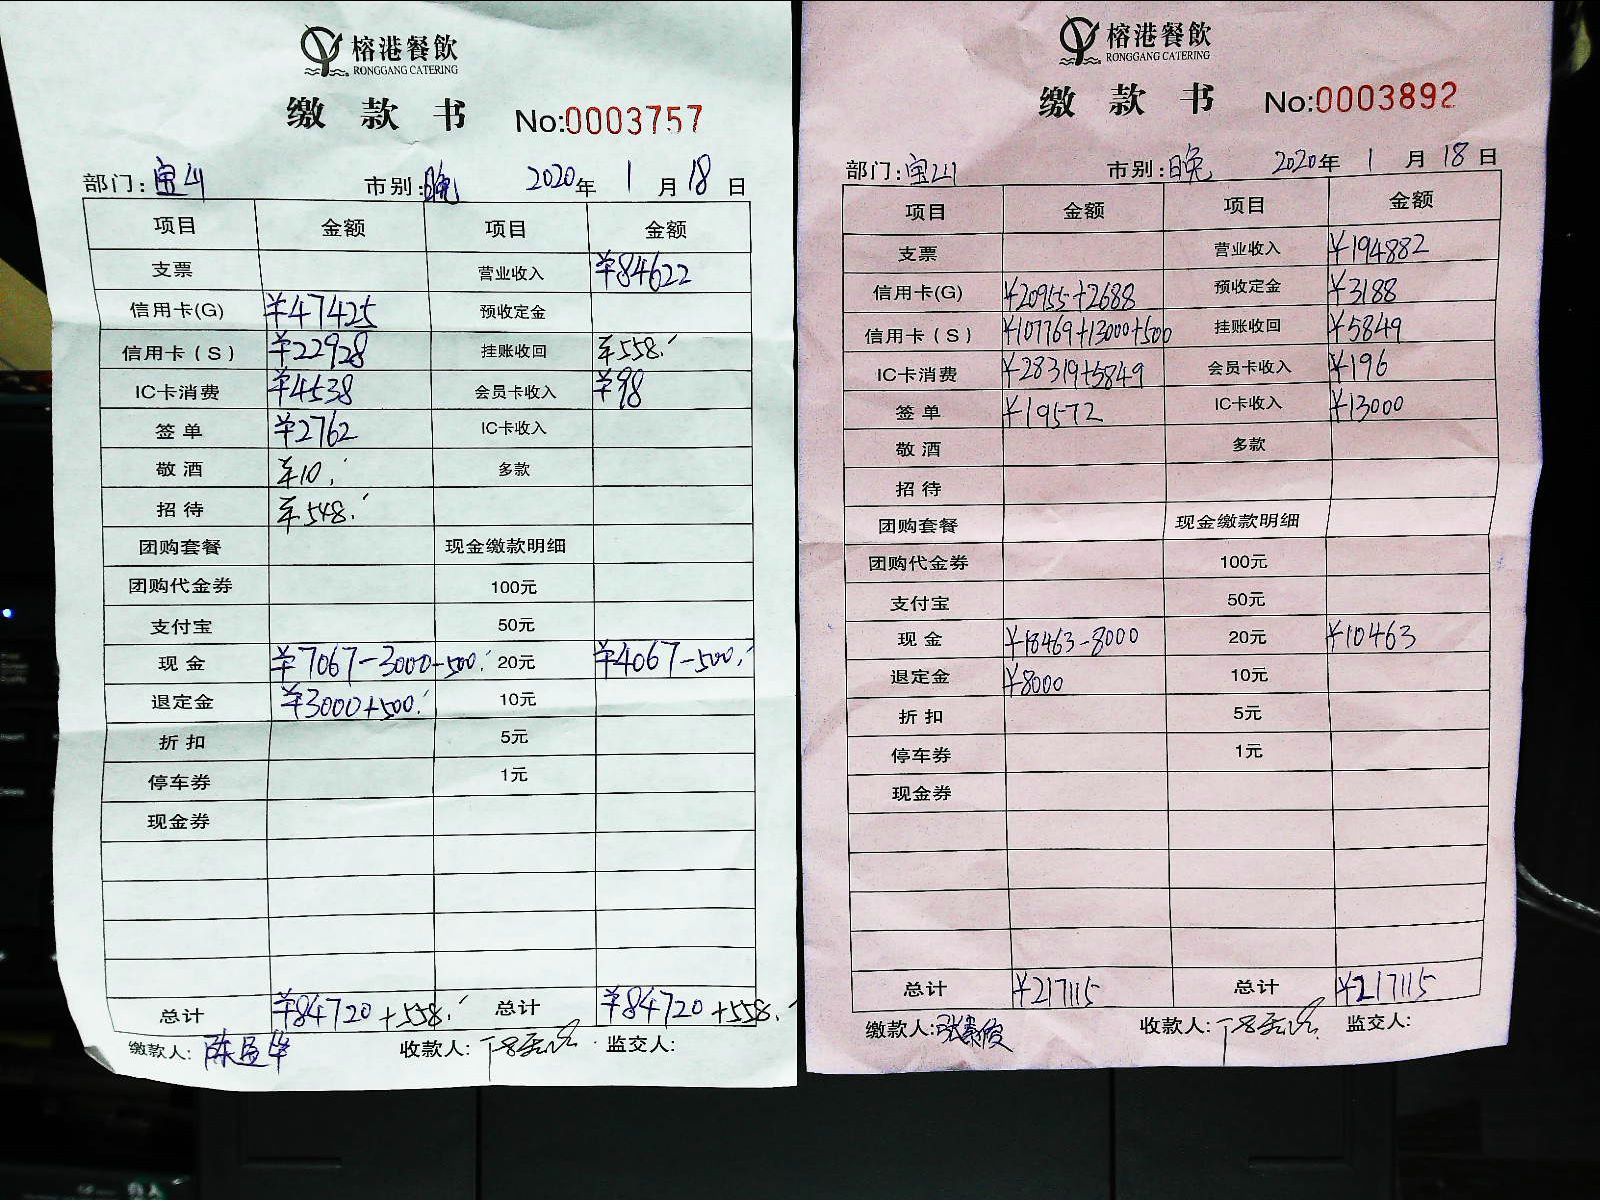 榕港餐飲
RONGGANG CATERING
缴款书 No:0003757
部门:宝山 市别:晚 2020年1月18日
项目 金额 项目 金额
支票 营业收入 ¥84622
信用卡(G) ¥47425 预收定金
信用卡(S) ¥22928 挂账收回 ¥558.
IC卡消费 ¥4538 会员卡收入 ¥98
签单 ¥2762 IC卡收入
敬酒 ¥10. 多款
招待 ¥548.
团购套餐 现金缴款明细
团购代金券 100元
支付宝 50元
现金 ¥7067-3000-500. 20元 ¥4067-500.
退定金 ¥3000+500. 10元
折扣 5元
停车券 1元
现金券
总计 ¥84720+558. 总计 ¥84720+558.
缴款人: 收款人: 监交人:
榕港餐飲
RONGGANG CATERING
缴款书 No:0003892
部门:宝山 市别:晚 2020年1月18日
项目 金额 项目 金额
支票 营业收入 ¥194882
信用卡(G) ¥20955+2688 预收定金 ¥3188
信用卡(S) ¥107769+13000+500 挂账收回 ¥5849
IC卡消费 ¥28319+5849 会员卡收入 ¥196
签单 ¥19572 IC卡收入 ¥13000
敬酒 多款
招待
团购套餐 现金缴款明细
团购代金券 100元
支付宝 50元
现金 ¥18463-8000 20元 ¥10463
退定金 ¥8000 10元
折扣 5元
停车券 1元
现金券
总计 ¥217115 总计 ¥217115
缴款人: 收款人: 监交人: